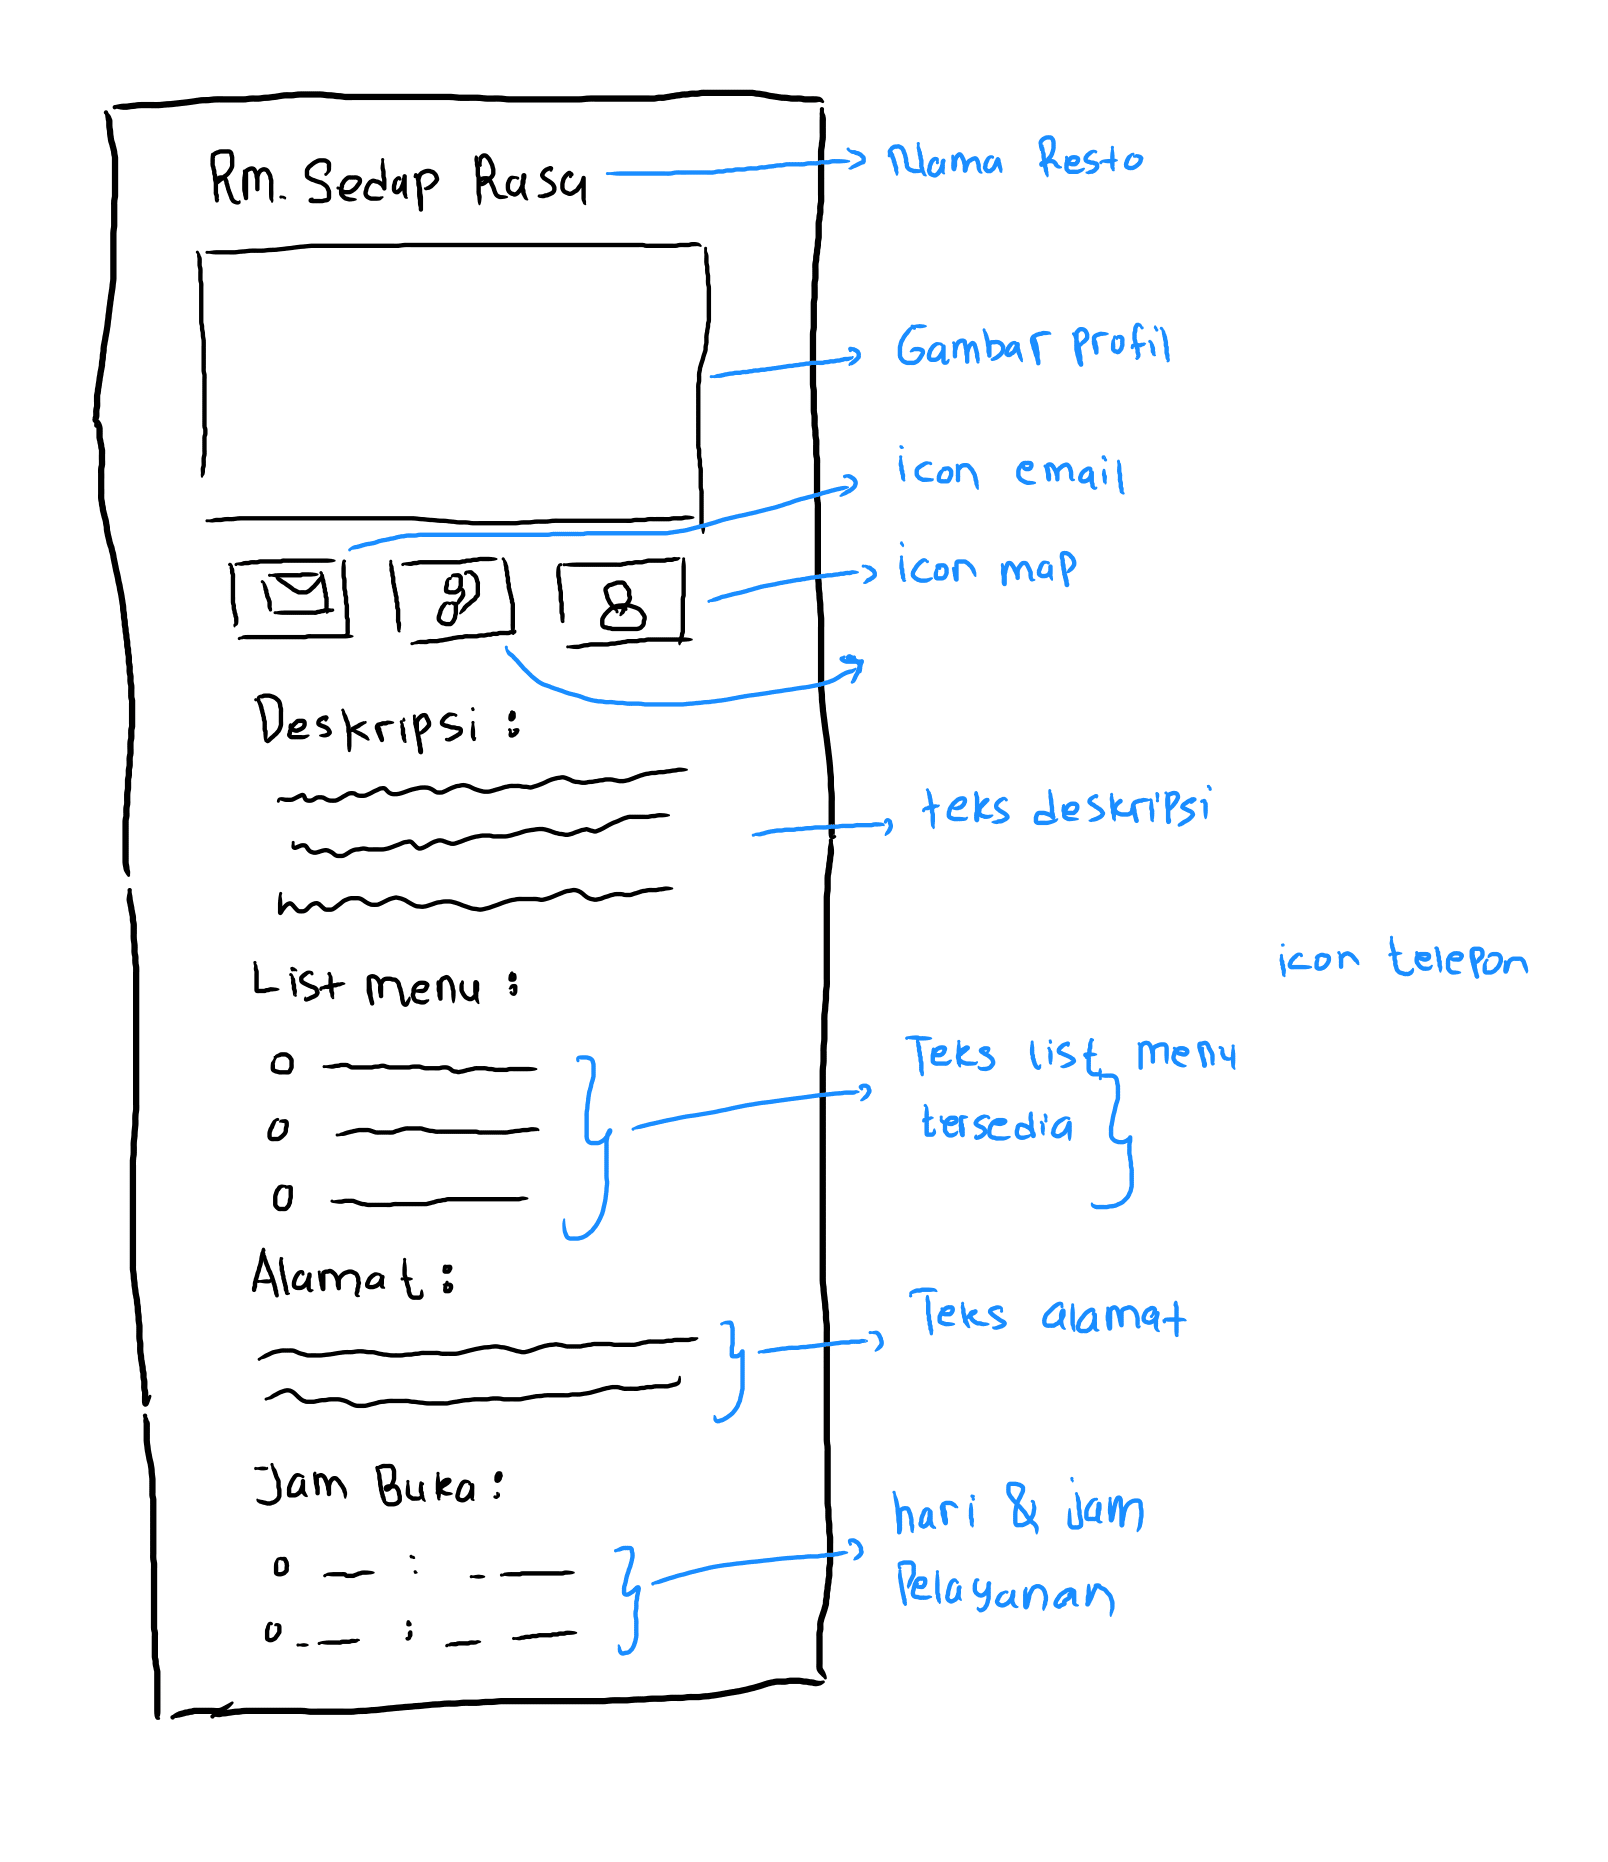 Rm. Sedap Rasa
Nama Resto
Gambar profil
icon email
icon map
Deskripsi :
teks deskripsi
icon telepon
List menu :
Teks list menu
tersedia
Alamat :
Teks alamat
Jam Buka :
hari & jam
Pelayanan